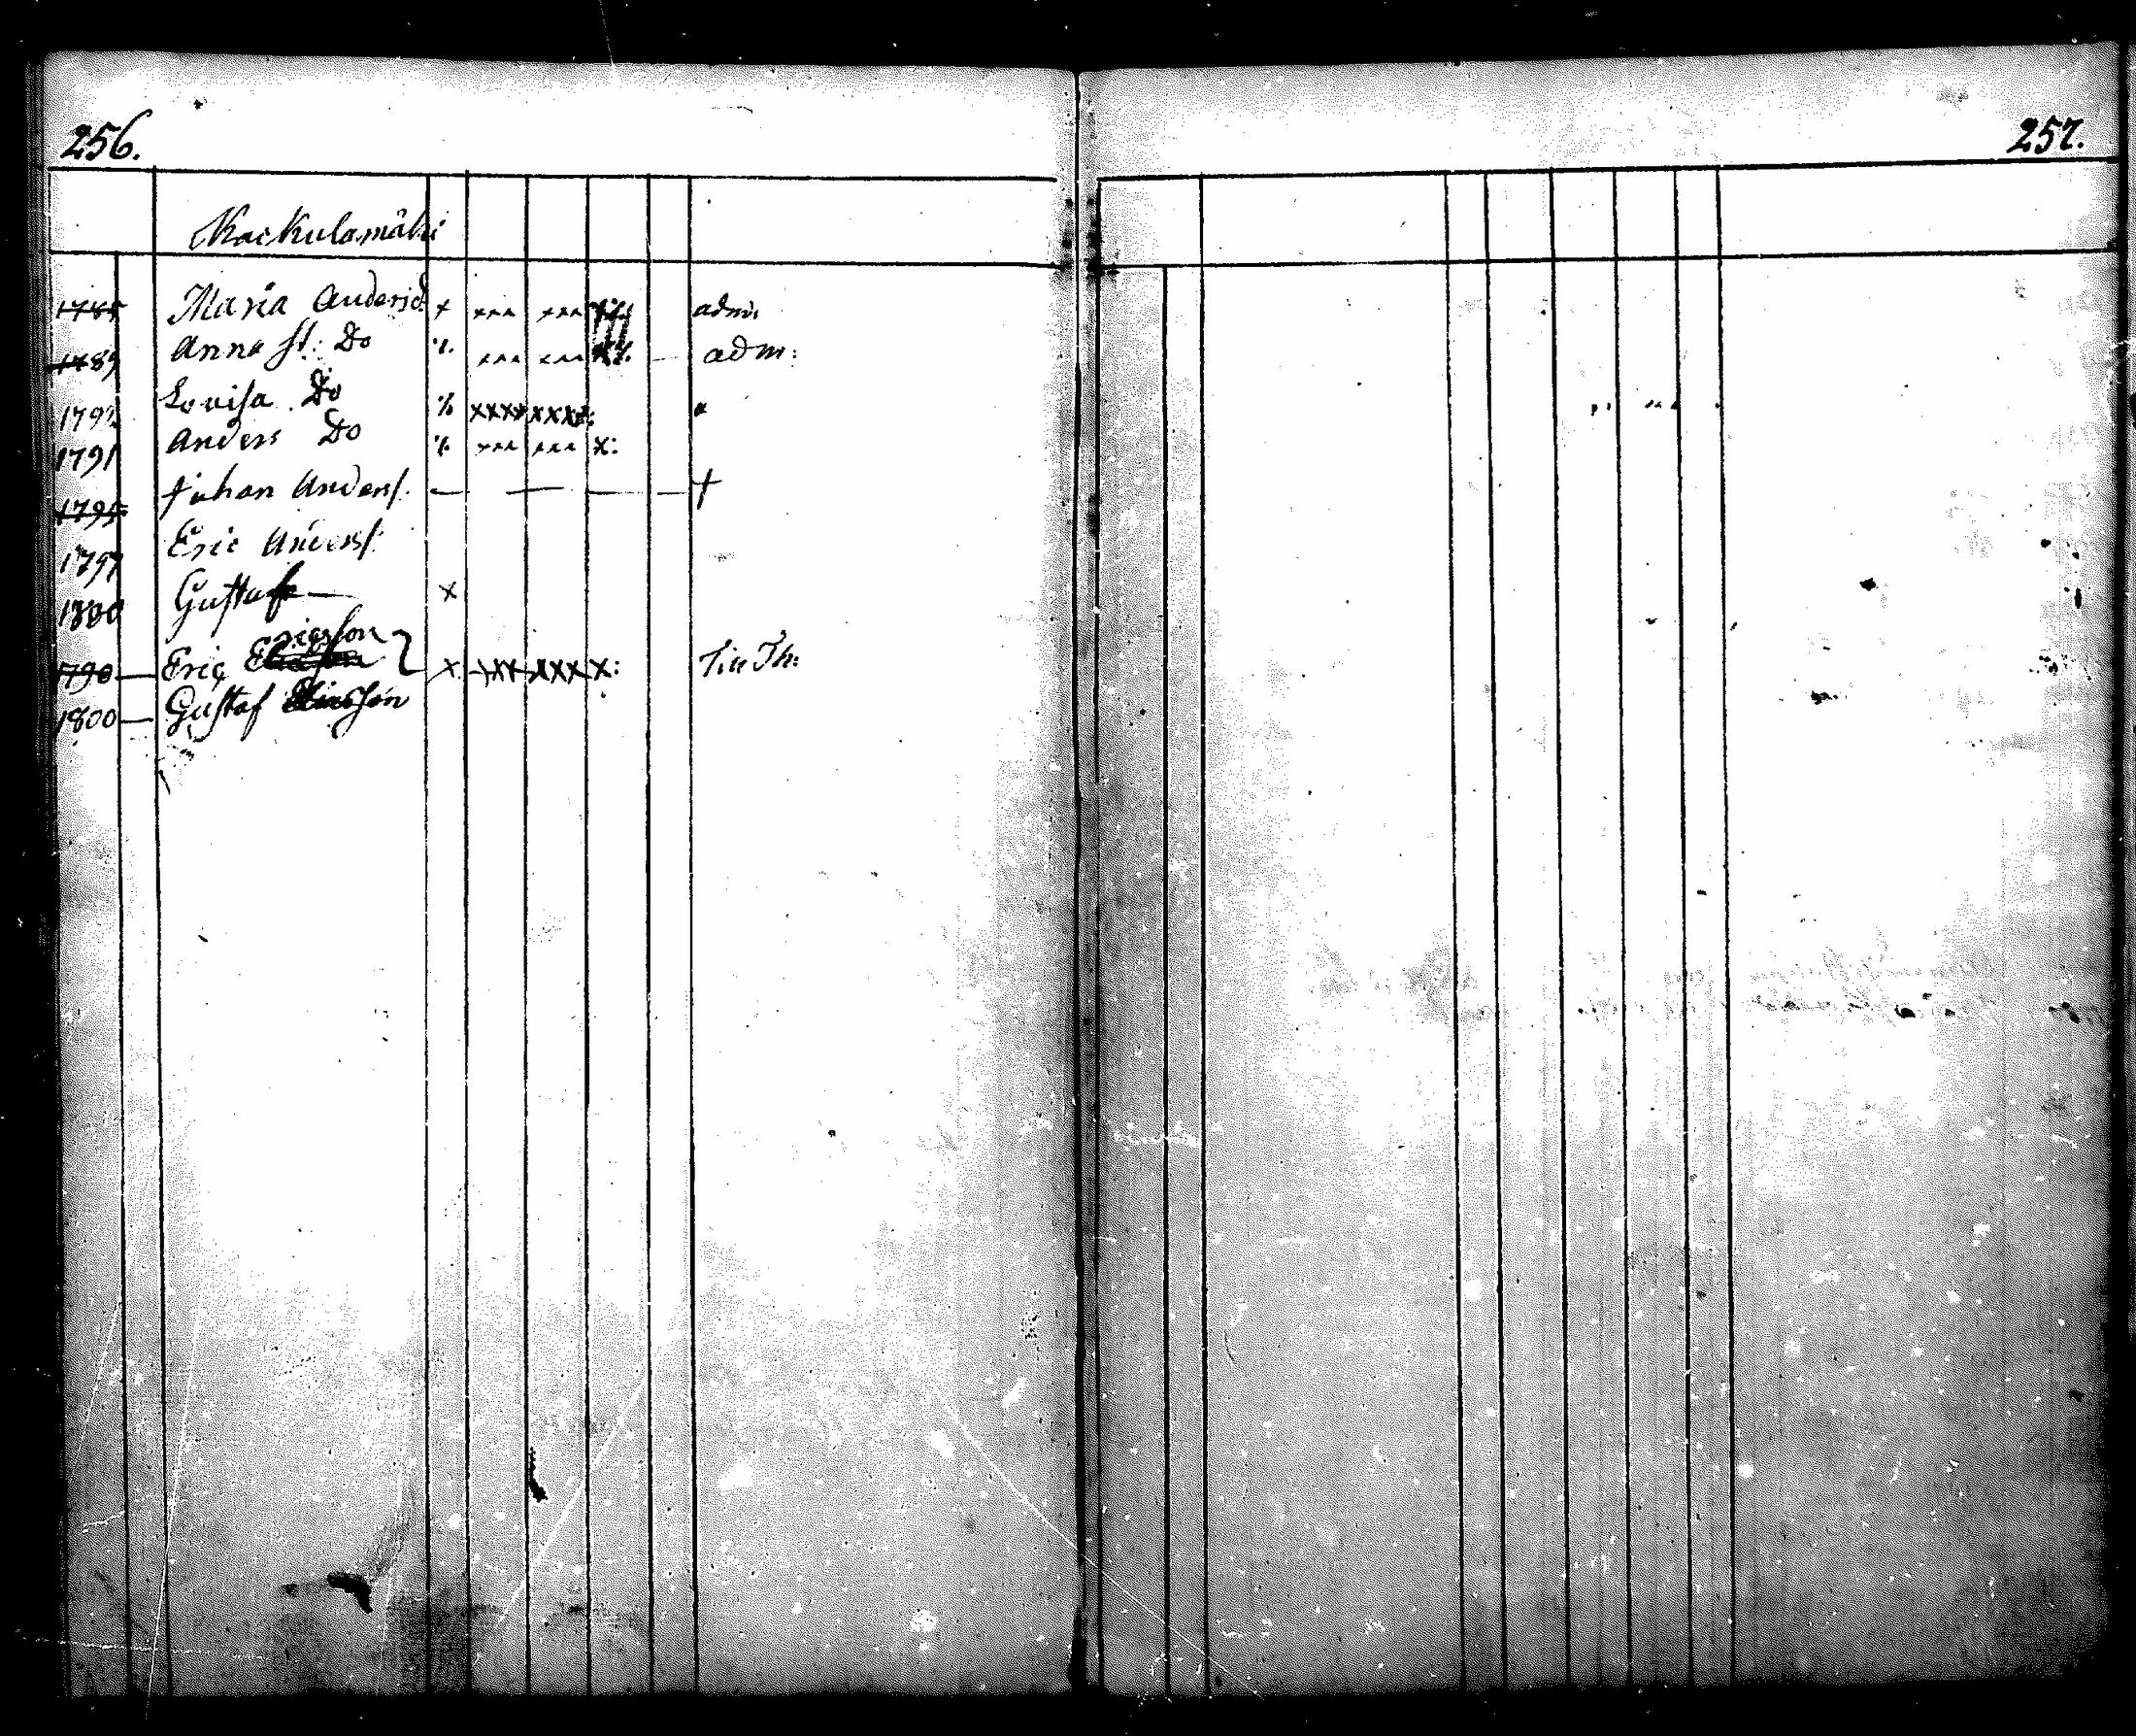 256.
257.
Kackulamäki
1785 Maria Andersd. x xxx xxx adm:
1789 Anna St: Do % xxx xxx adm:
179 Lovisa Do % xxxx xxxx:
1791 Anders Do % xxx xxx x:
1795 Johan Anders. — — — — †
1797 Eric Anders:
1800 Gustaf — x
ricsson
1790 — Eric E x xxx xxx x: Th:
1800 — Gustaf